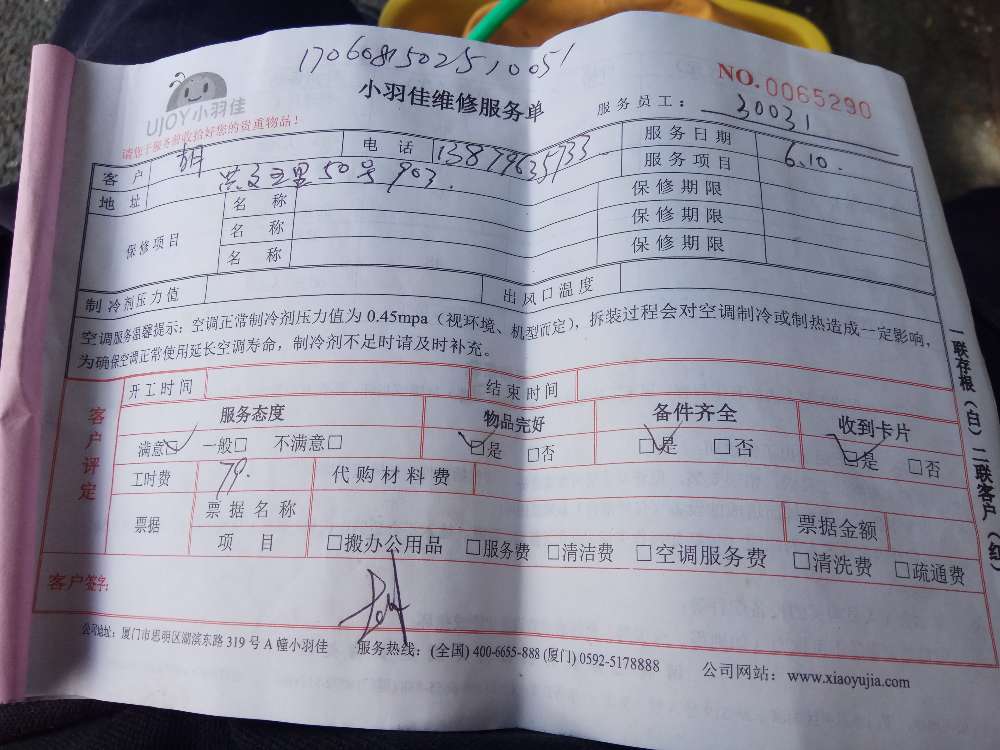 1706081502510051
NO.0065290
UJOY小羽佳
小羽佳维修服务单
服务员工： 30031
请您于服务前收拾好您的贵重物品！
客户 胡 电话 服务日期 6.10.
地址 洪文三里50号903. 服务项目
保修项目 名称 保修期限
名称 保修期限
名称 保修期限
制冷剂压力值 出风口温度
空调服务温馨提示：空调正常制冷剂压力值为 0.45mpa（视环境、机型而定），拆装过程会对空调制冷或制热造成一定影响，
为确保空调正常使用延长空调寿命，制冷剂不足时请及时补充。
客户评定
开工时间 结束时间
服务态度 物品完好 备件齐全 收到卡片
满意☑ 一般□ 不满意□ ☑是 □否 ☑是 □否 ☑是 □否
工时费 79. 代购材料费
票据 票据名称 票据金额
项目 □搬办公用品 □服务费 □清洁费 □空调服务费 □清洗费 □疏通费
客户签字: 胡
公司地址：厦门市思明区湖滨东路 319 号 A 幢小羽佳 服务热线：(全国) 400-6655-888 (厦门) 0592-5178888 公司网站：www.xiaoyujia.com
一联存根（白）二联客户（红）